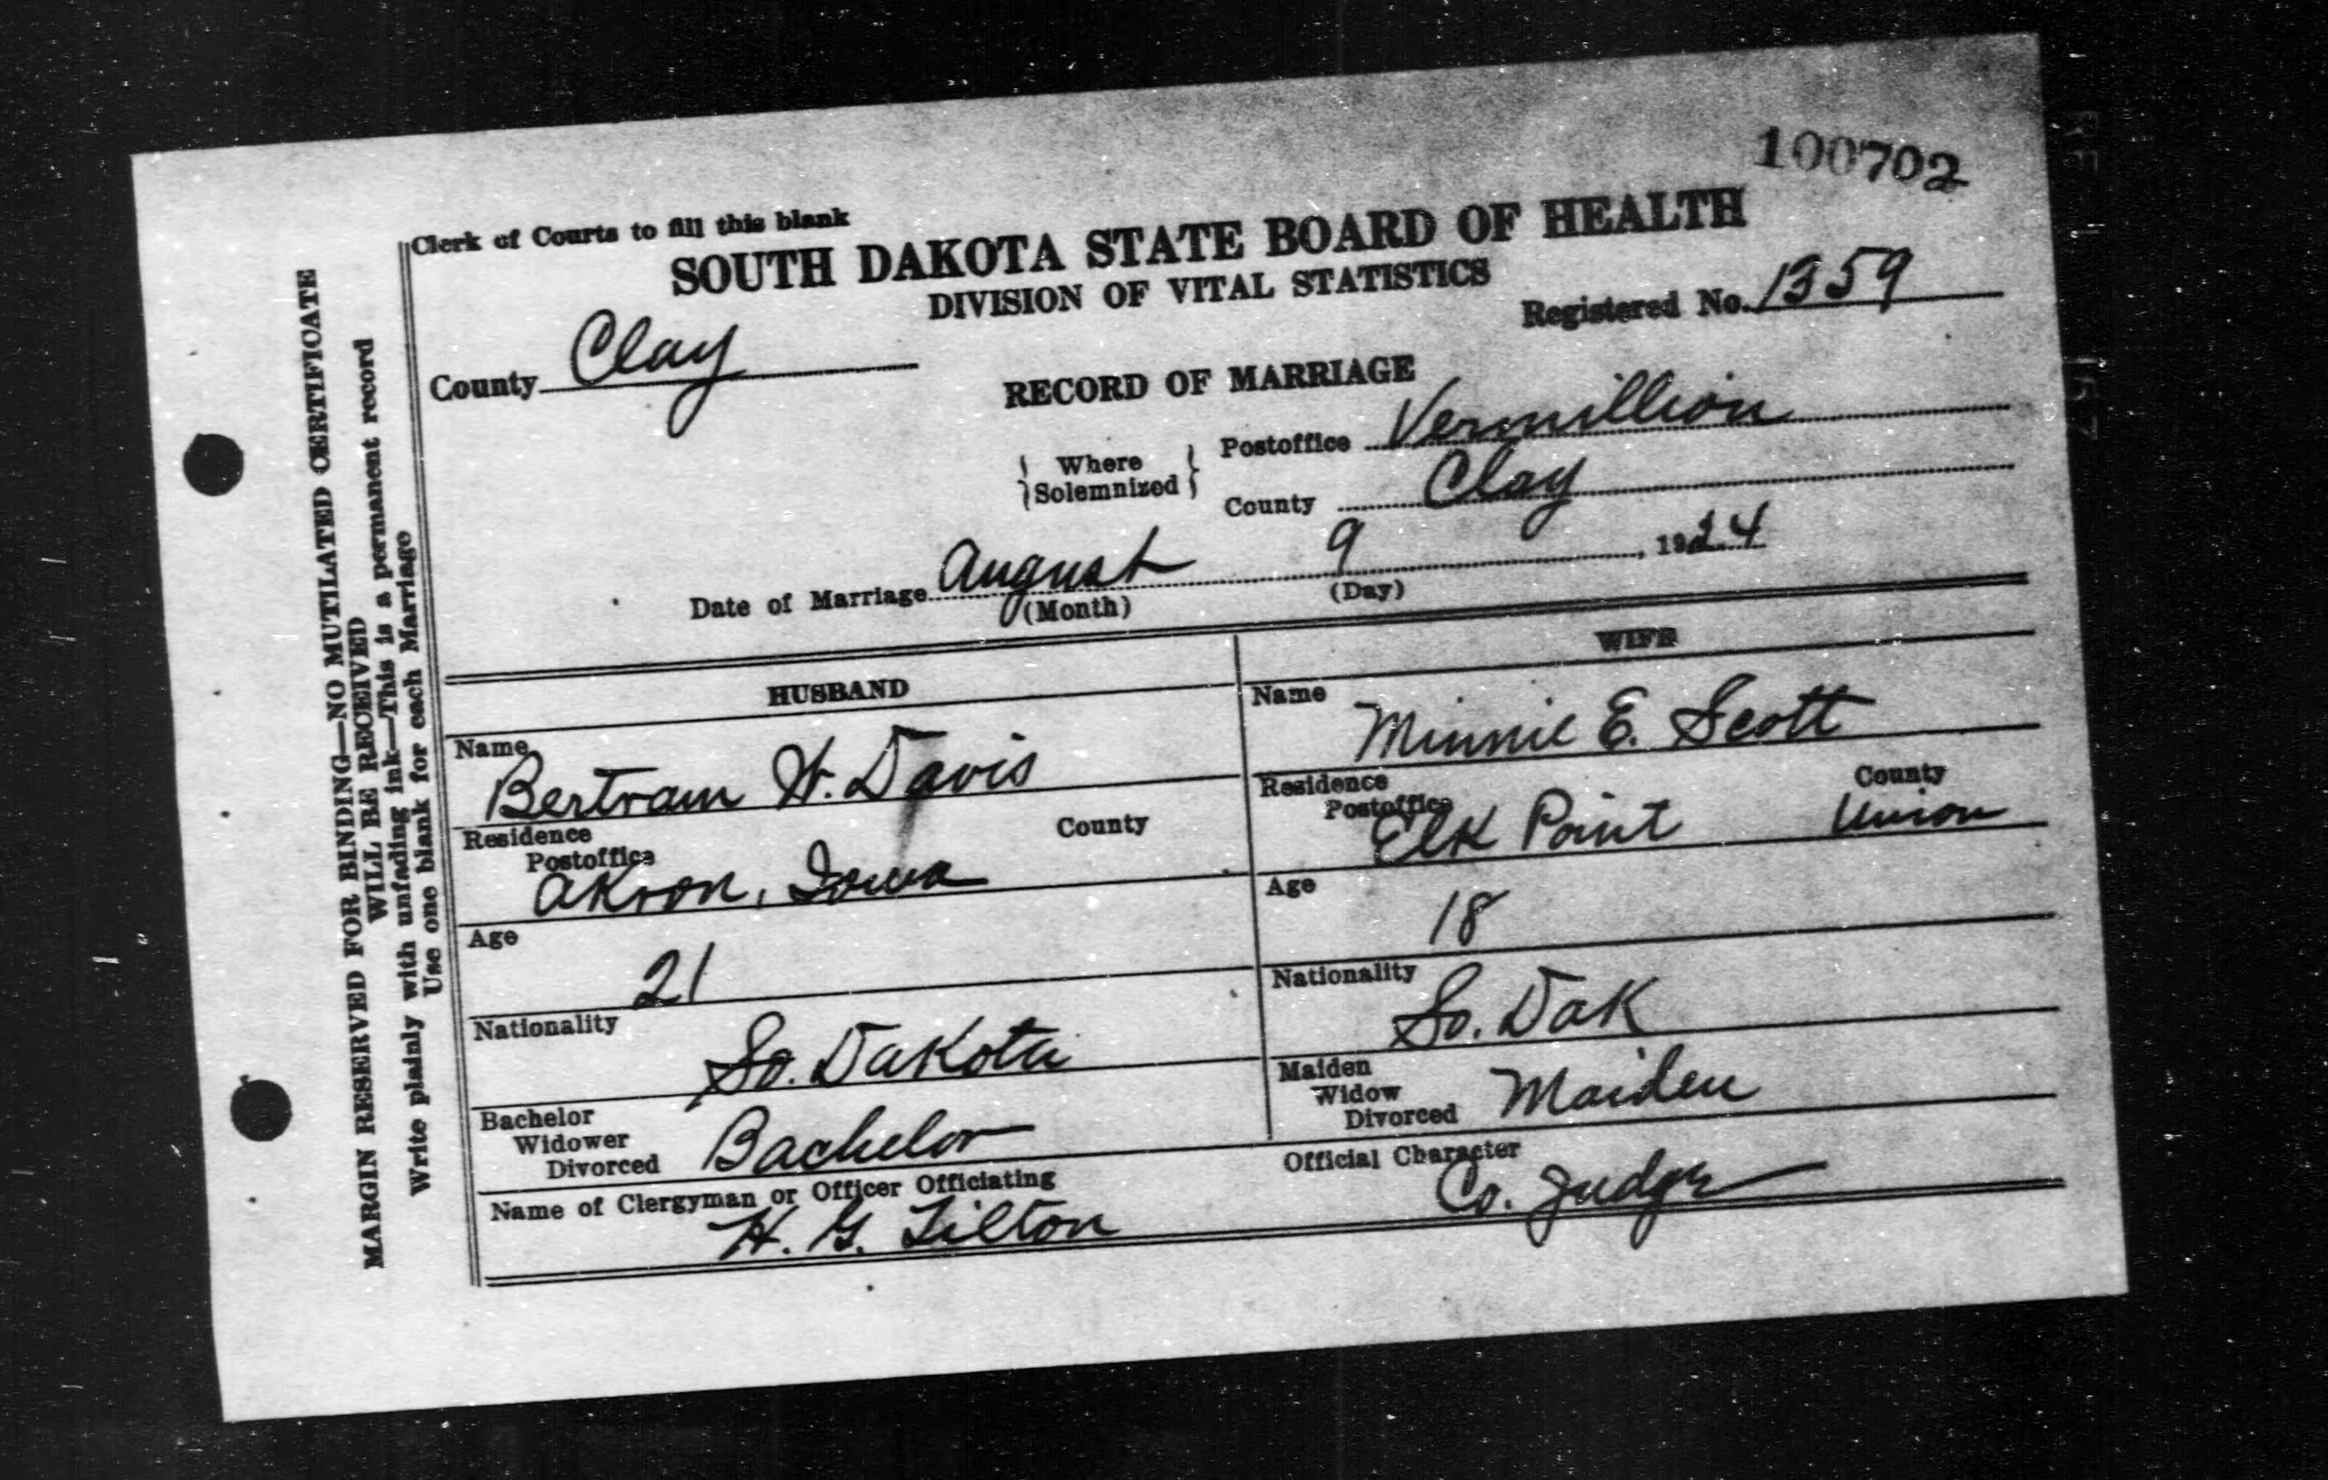 100702
Clerk of Courts to fill this blank
SOUTH DAKOTA STATE BOARD OF HEALTH
DIVISION OF VITAL STATISTICS
Registered No. 1359
County Clay
RECORD OF MARRIAGE
Where Solemnized
Postoffice Vermillion
County Clay
Date of Marriage August 9, 1924
(Month) (Day)
HUSBAND
Name
Bertram W. Davis
Residence
Postoffice County
Akron, Iowa
Age
21
Nationality
So. Dakota
Bachelor
Widower
Divorced Bachelor
WIFE
Name
Minnie E. Scott
Residence
Postoffice County
Elk Point Union
Age
18
Nationality
So. Dak
Maiden
Widow
Divorced Maiden
Name of Clergyman or Officer Officiating
H. G. Tilton
Official Character
Co. Judge
MARGIN RESERVED FOR BINDING—NO MUTILATED CERTIFICATE
WILL BE RECEIVED
Write plainly with unfading ink—This is a permanent record
Use one blank for each Marriage